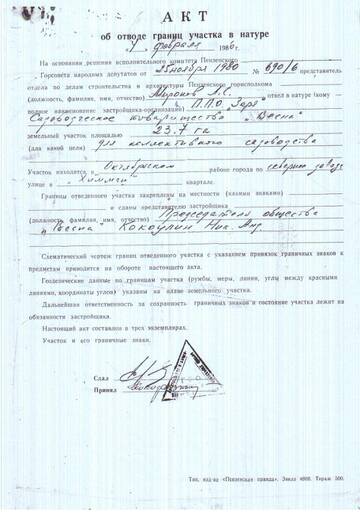 АКТ
об отводе границ участка в натуре
4 февраля 1986 г.
На основании решения исполнительного комитета Пензенского
Горсовета народных депутатов от 25 ноября 1980 № 690/6 представитель
отдела по делам строительства и архитектуры Пензенского горисполкома
(должность, фамилия, имя, отчество) Миронов А.С. отвел в натуре (кому —
полное наименование застройщика-организации) П.П.О. "Заря"
Садоводческое товарищество "Весна"
земельный участок площадью 23.7 га
(для какой цели) для коллективного садоводства
Участок находится в Октябрьском районе города по северней завода
улице в "Химмаш" квартале.
Границы отведенного участка закреплены на местности (какими знаками)
и сданы представителю застройщика
(должность, фамилия, имя, отчество) Председателю общества
"Весна" Кокоулин Ник. Анд.
Схематический чертеж границ отведенного участка с указанием привязок граничных знаков к
предметам приводится на обороте настоящего акта.
Геодезические данные по границам участка (румбы, меры, линии, углы между красными
линиями, координаты углов) указаны на плане земельного участка.
Дальнейшая ответственность за сохранность граничных знаков и состояние участка лежит на
обязанности застройщика.
Настоящий акт составлен в трех экземплярах.
Участок и его граничные знаки.
Сдал
Принял
Тип. изд-ва «Пензенская правда». Заказ 4908. Тираж 500.